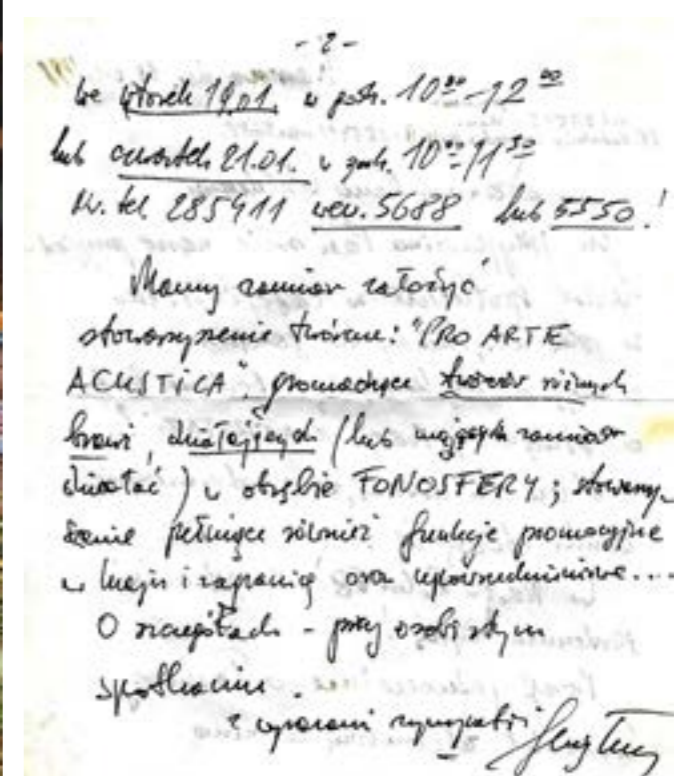 - 2 -
we wtorek 19.01. w godz. 10⁰⁰-12⁰⁰
lub czwartek 21.01. w godz. 10⁰⁰-11³⁰
Nr. tel 285411 wew. 5688 lub 5550!
Mamy zamiar założyć
stowarzyszenie twórcze: "PRO ARTE
ACUSTICA", gromadzące twórców różnych
branż, działających (lub mających zamiar
działać) w obrębie FONOSFERY; stowarzy-
szenie pełniące również funkcje promocyjne
w kraju i zagranicą oraz upowszechnieniowe....
O szczegółach - przy osobistym
spotkaniu.
z wyrazami sympatii